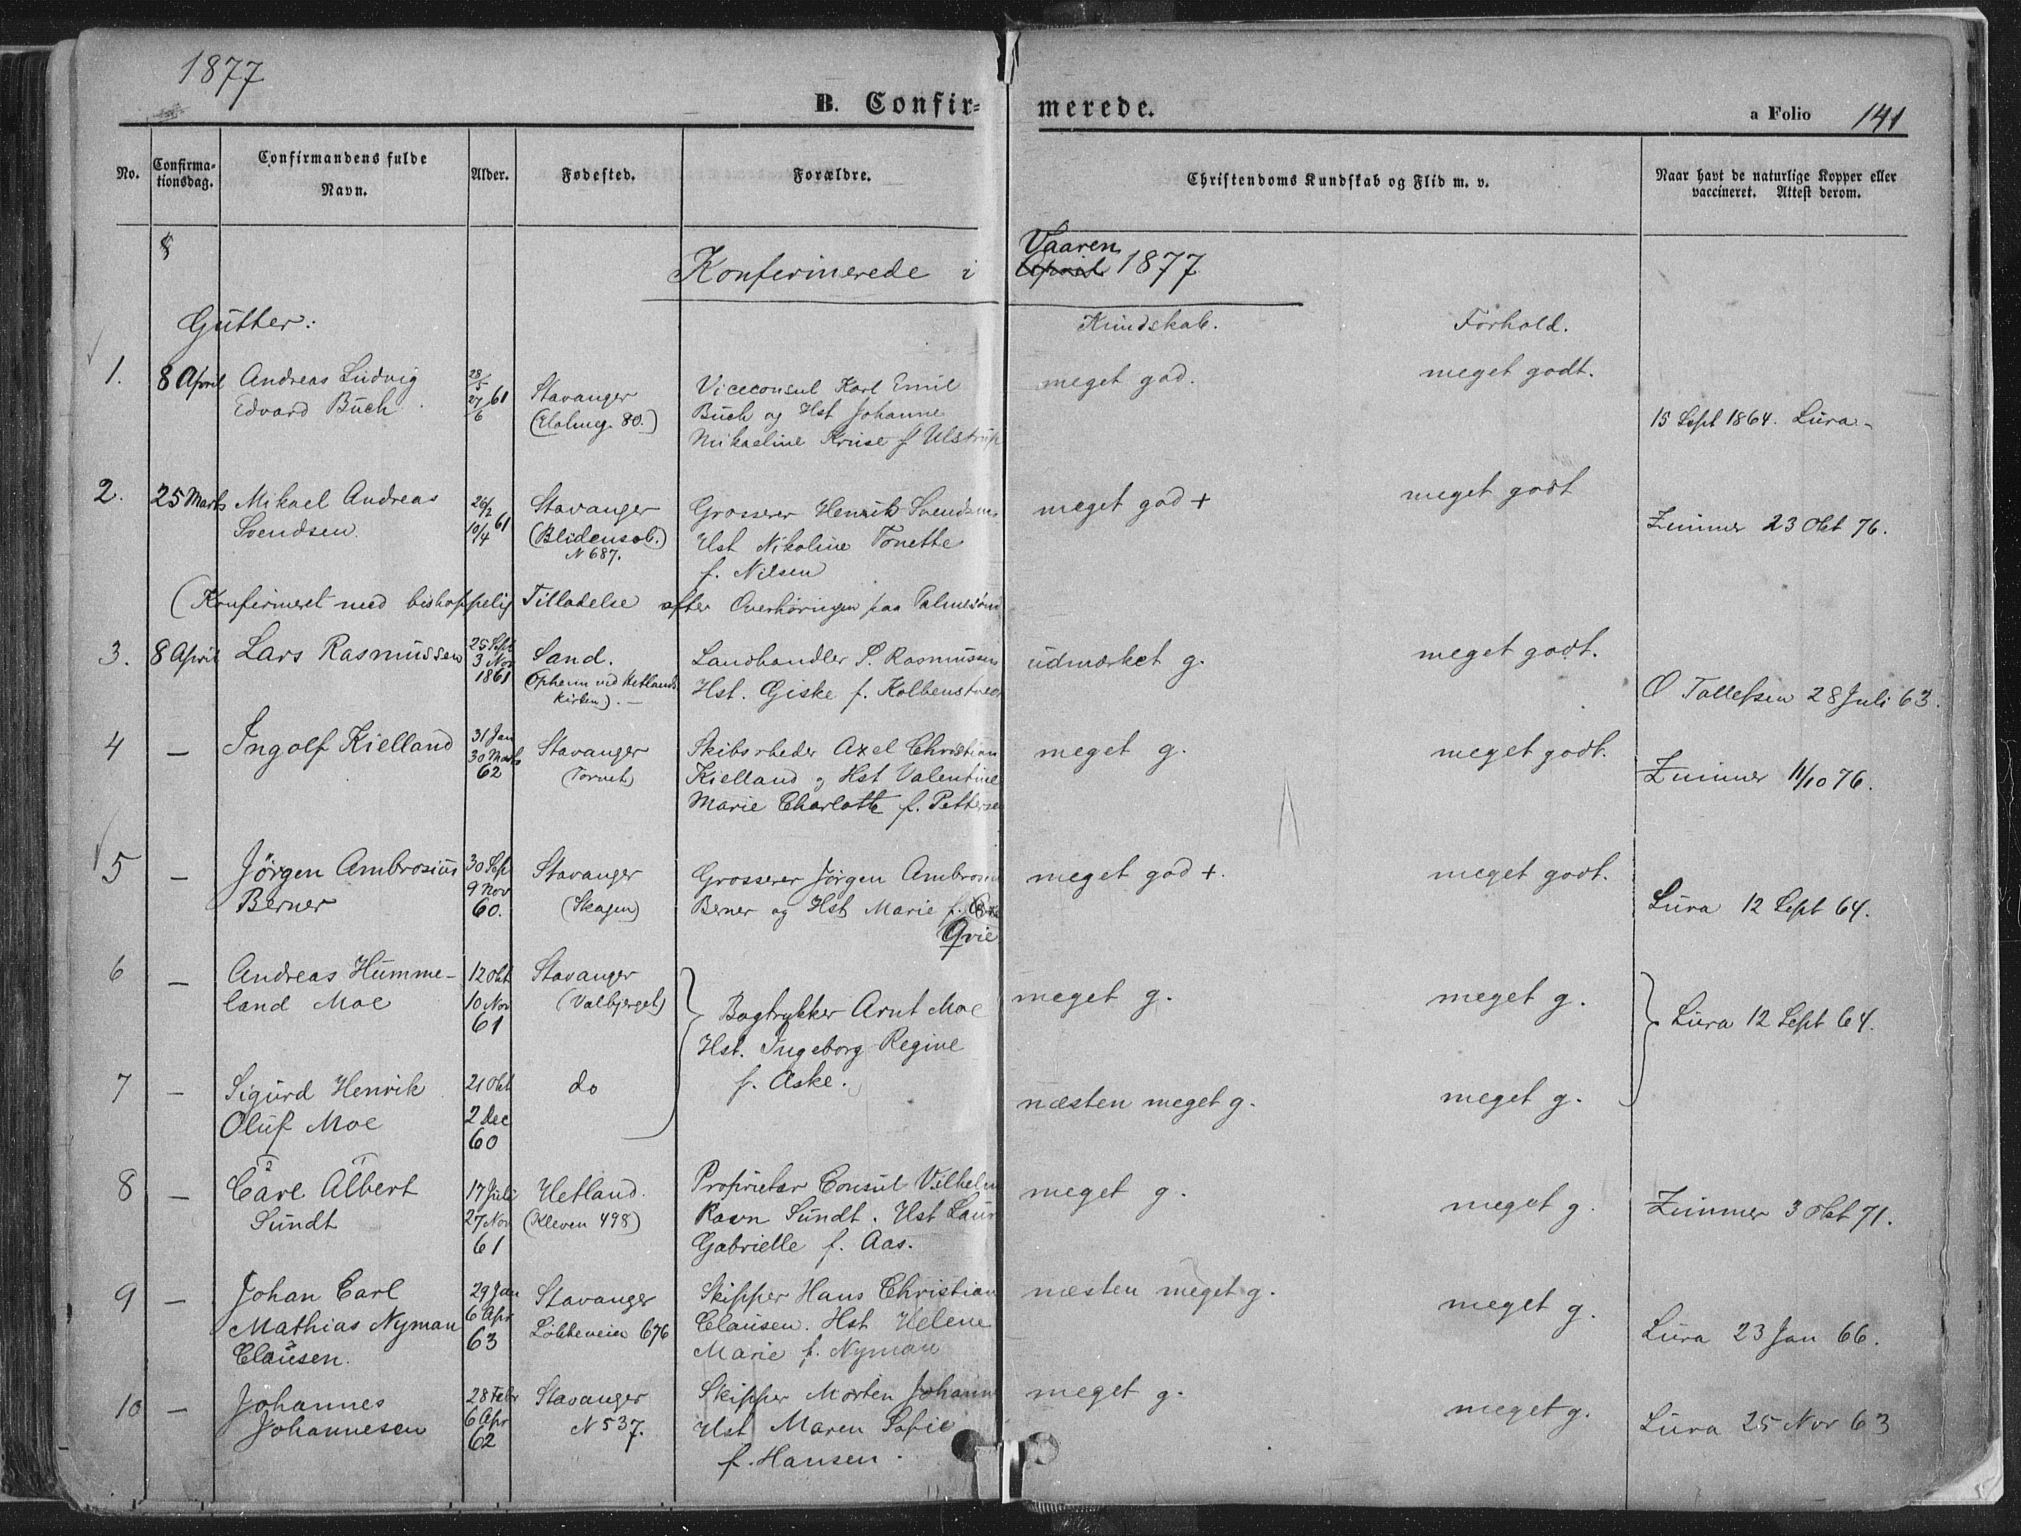 1877
B. Confirmerede.
a Folio 141
No.
Confirma-
tionsdag.
Confirmandens fulde
Navn.
Alder.
Fødested.
Forældre.
Christendoms Kundskab og Flid m. v.
Naar havt de naturlige Kopper eller
vaccineret. Attest derom.
8
Konfirmerede i Vaaren 1877
April
Gutter:
Kundskab.
Forhold.
1. 8 April Andreas Ludvig 28/5 Stavanger Viceconsul Karl Emil meget god. meget godt.
Edvard Buch 27/6 61 (80.) Buch og Hst Johanne 15 Sept 1864. Lura
Mikaeline Kruse f Ulstrup
2. 25 Marts Mikael Andreas 26/2 Stavanger Grosserer Henrik Svendsen meget god + meget godt
Svendsen. 10/4 61 (Blidensol.) Hst Nikoline Tonette Zimmer 23 Okt 76.
N 687. f. Nilsen
(Konfirmeret med bishoppelig Tilladelse efter Overhøringen paa Palmesøn
3. 8 April Lars Rasmussen 25 Sept Sand. Landhandler P. Rasmussen udmærket g. meget godt.
3 Nov (Opheim ved Hetlands Hst. Giske f. Kolbenstvedt O Tallefsen 28 Juli 63.
1861 kirken).
4 — Ingolf Kielland 31 Jan Stavanger Skibsrheder Axel Christian meget g. meget godt.
30 Marts (Tornet) Kielland og Hst Valentine Zimmer 11/10 76.
62 Marie Charlotte f. Pettersen
5 — Jörgen Ambrosius 30 Sep Stavanger Grosserer Jörgen Ambrosius meget god +. meget godt.
Berner 9 Nov (Skagen) Berner og Hst Marie f. Lura 12 Sept 64.
60. Qvie
6 — Andreas Humme- 12 Okt Stavanger meget g. meget g.
land Moe 10 Nov (Valbjerget) Bogtrykker Arnt Moe Lura 12 Sept 64.
61 Hst. Ingeborg Regine
7 — Sigurd Henrik 21 Okt do f. Aske. næsten meget g. meget g.
Oluf Moe 2 Dec
60
2 1
8 — Carl Albert 17 Juli Hetland. Proprietær Consul Vilhelm meget g. meget g.
Sundt 27 Nov (Kleven 498) Ravn Sundt. Hst Laur Zimmer 3 Okt 71.
61 Gabrielle f. Aas.
9 — Johan Carl 29 Jan Stavanger Skipper Hans Christian næsten meget g. meget g.
Mathias Nyman 6 Apr Løkkeveien 676 Clausen. Hst Helene Lura 23 Jan 66.
Clausen. 63 Marie f. Nyman
10 — Johannes 28 Febr Stavanger Skipper Morten Johann meget g. meget g.
Johannesen 6 Apr N 537. Hst Maren Sofie Lura 25 Nov 63
62 f. Hansen.